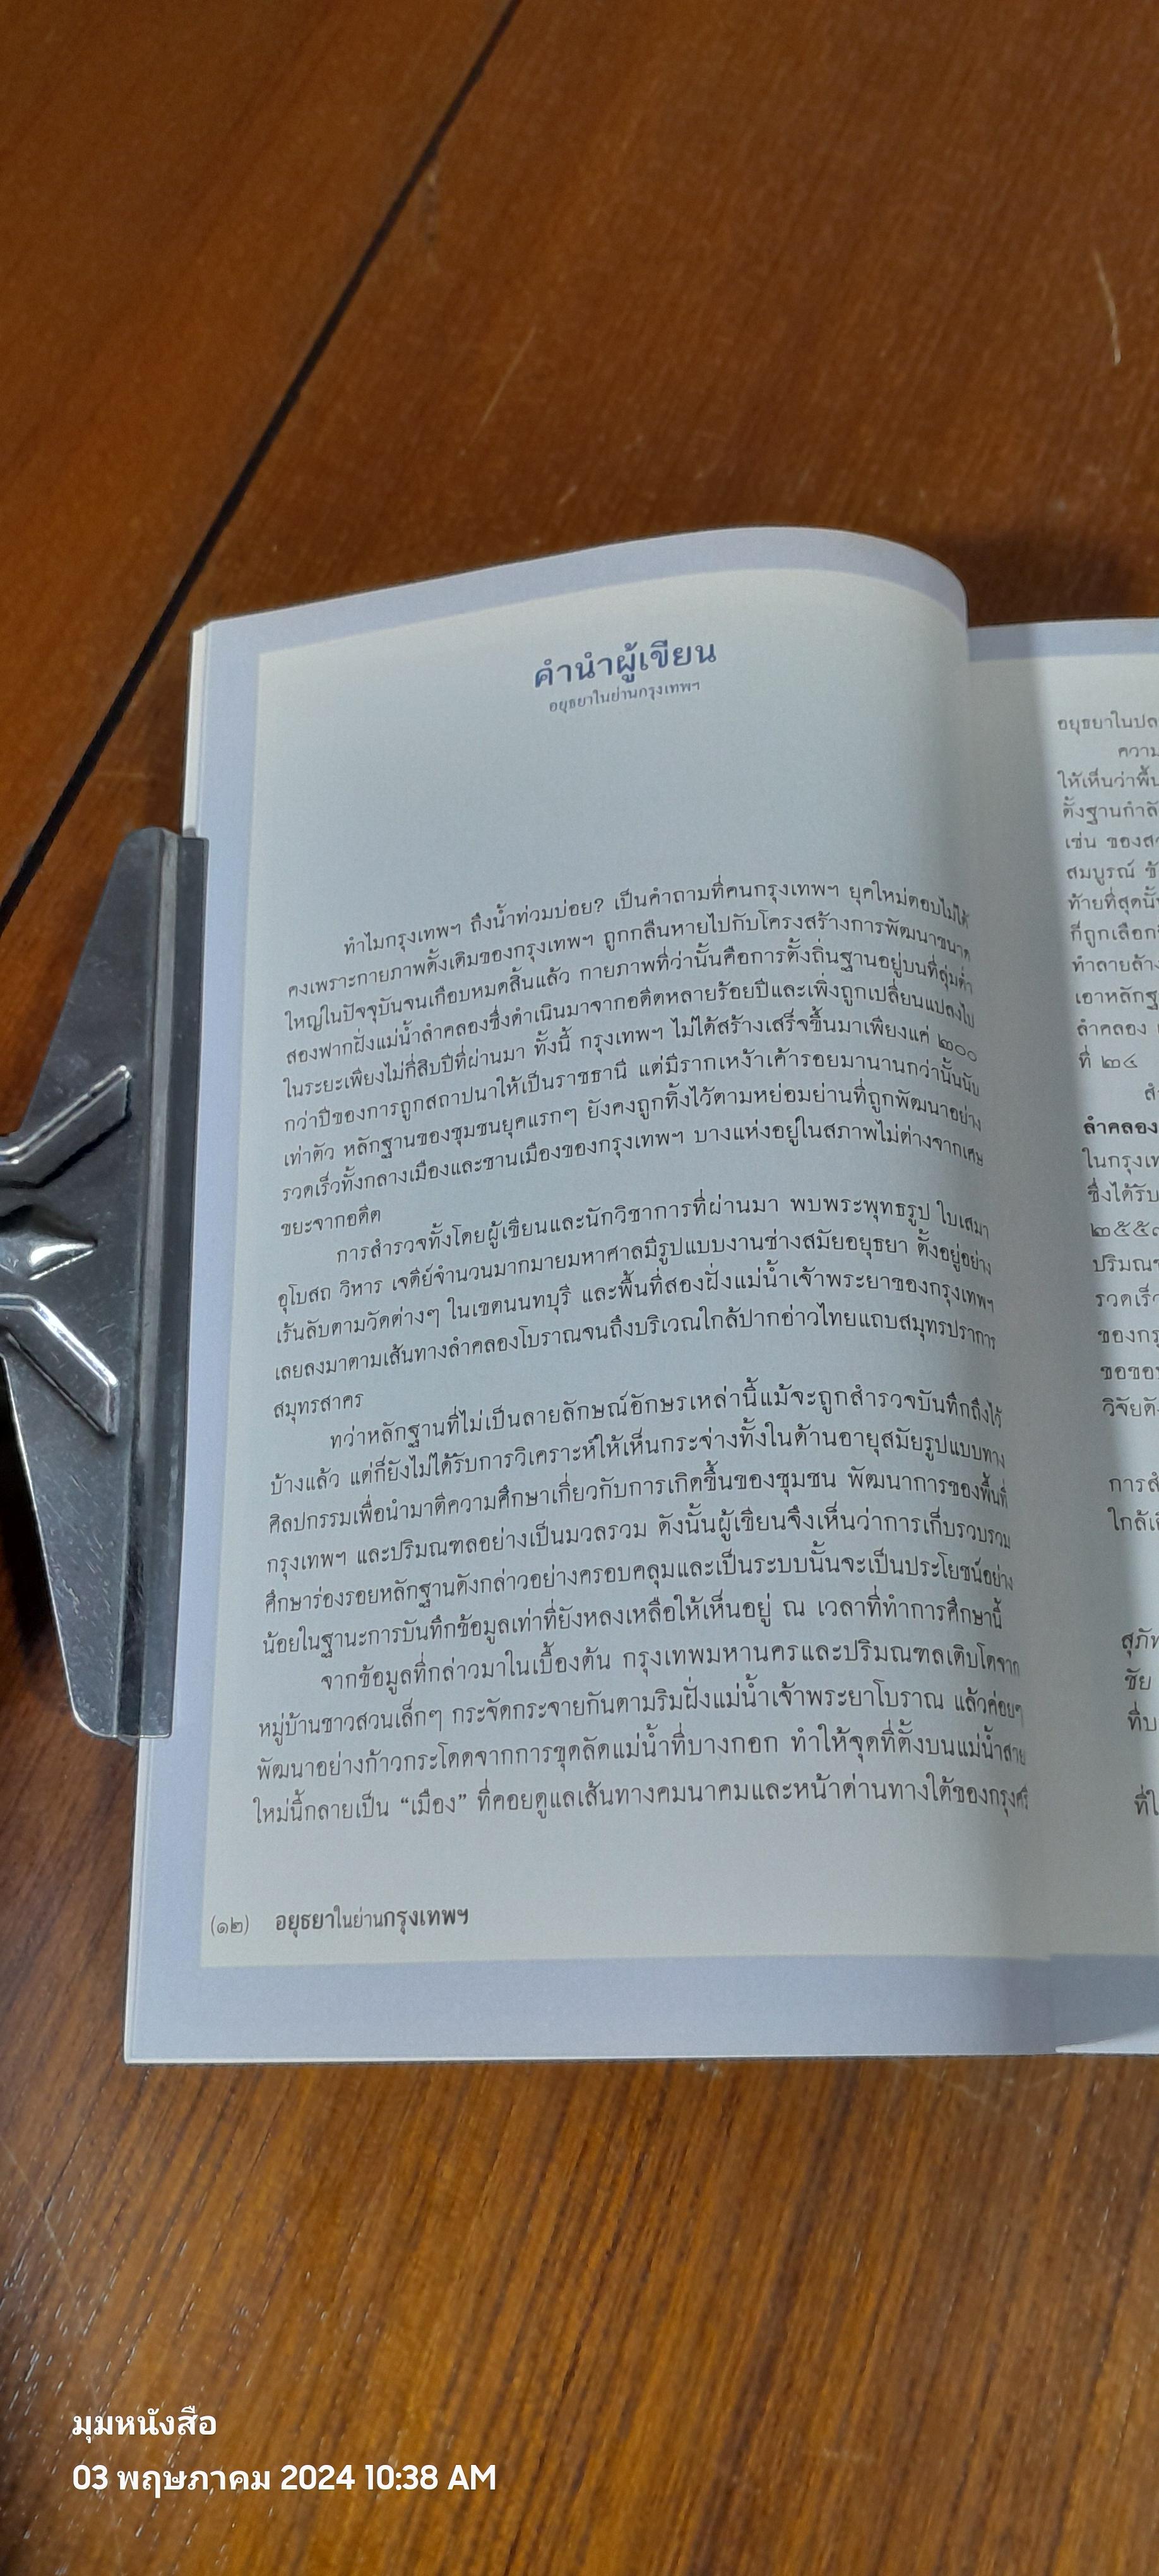 คำนำผู้เขียน
อยุธยาในย่านกรุงเทพฯ
ทำไมกรุงเทพฯ ถึงน้ำท่วมบ่อย? เป็นคำถามที่คนกรุงเทพฯ ยุคใหม่ตอบไม่ได้
คงเพราะกายภาพดั้งเดิมของกรุงเทพฯ ถูกกลืนหายไปกับโครงสร้างการพัฒนาขนาด
ใหญ่ในปัจจุบันจนเกือบหมดสิ้นแล้ว กายภาพที่ว่านั้นคือการตั้งถิ่นฐานอยู่บนที่ลุ่มต่ำ
สองฟากฝั่งแม่น้ำลำคลองซึ่งดำเนินมาจากอดีตหลายร้อยปีและเพิ่งถูกเปลี่ยนแปลงไป
ในระยะเพียงไม่กี่สิบปีที่ผ่านมา ทั้งนี้ กรุงเทพฯ ไม่ได้สร้างเสร็จขึ้นมาเพียงแค่ ๒๐๐
กว่าปีของการถูกสถาปนาให้เป็นราชธานี แต่มีรากเหง้าเค้ารอยมานานกว่านั้นนับ
เท่าตัว หลักฐานของชุมชนยุคแรกๆ ยังคงถูกทิ้งไว้ตามหย่อมย่านที่ถูกพัฒนาอย่าง
รวดเร็วทั้งกลางเมืองและชานเมืองของกรุงเทพฯ บางแห่งอยู่ในสภาพไม่ต่างจากเศษ
ขยะจากอดีต
การสำรวจทั้งโดยผู้เขียนและนักวิชาการที่ผ่านมา พบพระพุทธรูป ใบเสมา
อุโบสถ วิหาร เจดีย์จำนวนมากมายมหาศาลมีรูปแบบงานช่างสมัยอยุธยา ตั้งอยู่อย่าง
เร้นลับตามวัดต่างๆ ในเขตนนทบุรี และพื้นที่สองฝั่งแม่น้ำเจ้าพระยาของกรุงเทพฯ
เลยลงมาตามเส้นทางลำคลองโบราณจนถึงบริเวณใกล้ปากอ่าวไทยแถบสมุทรปราการ
สมุทรสาคร
ทว่าหลักฐานที่ไม่เป็นลายลักษณ์อักษรเหล่านี้แม้จะถูกสำรวจบันทึกถึงไว้
บ้างแล้ว แต่ก็ยังไม่ได้รับการวิเคราะห์ให้เห็นกระจ่างทั้งในด้านอายุสมัยรูปแบบทาง
ศิลปกรรมเพื่อนำมาตีความศึกษาเกี่ยวกับการเกิดขึ้นของชุมชน พัฒนาการของพื้นที่
กรุงเทพฯ และปริมณฑลอย่างเป็นมวลรวม ดังนั้นผู้เขียนจึงเห็นว่าการเก็บรวบรวม
ศึกษาร่องรอยหลักฐานดังกล่าวอย่างครอบคลุมและเป็นระบบนั้นจะเป็นประโยชน์อย่าง
น้อยในฐานะการบันทึกข้อมูลเท่าที่ยังหลงเหลือให้เห็นอยู่ ณ เวลาที่ทำการศึกษานี้
จากข้อมูลที่กล่าวมาในเบื้องต้น กรุงเทพมหานครและปริมณฑลเติบโตจาก
หมู่บ้านชาวสวนเล็กๆ กระจัดกระจายกันตามริมฝั่งแม่น้ำเจ้าพระยาโบราณ แล้วค่อยๆ
พัฒนาอย่างก้าวกระโดดจากการขุดลัดแม่น้ำที่บางกอก ทำให้จุดที่ตั้งบนแม่น้ำสาย
ใหม่นี้กลายเป็น “เมือง” ที่คอยดูแลเส้นทางคมนาคมและหน้าด่านทางใต้ของกรุงศรี
(๑๒) อยุธยาในย่านกรุงเทพฯ
อยุธยาในปล
ความ
ให้เห็นว่าพื้น
ตั้งฐานกำลั
เช่น ของส
สมบูรณ์ ซั
ท้ายที่สุดนั้
ก็ถูกเลือก
ทำลายล้าง
เอาหลักฐ
ลำคลอง
ที่ ๒๔
ลำคลอง
ในกรุงเท
ซึ่งได้รับ
๒๕๕๗
ปริมณฑ
รวดเร็ว
ของกรุ
ขอขอบ
วิจัยดัง
การสำ
ใกล้เ
สุภัท
ชัย
ที่บ
ที่ใ
มุมหนังสือ
03 พฤษภาคม 2024 10:38 AM